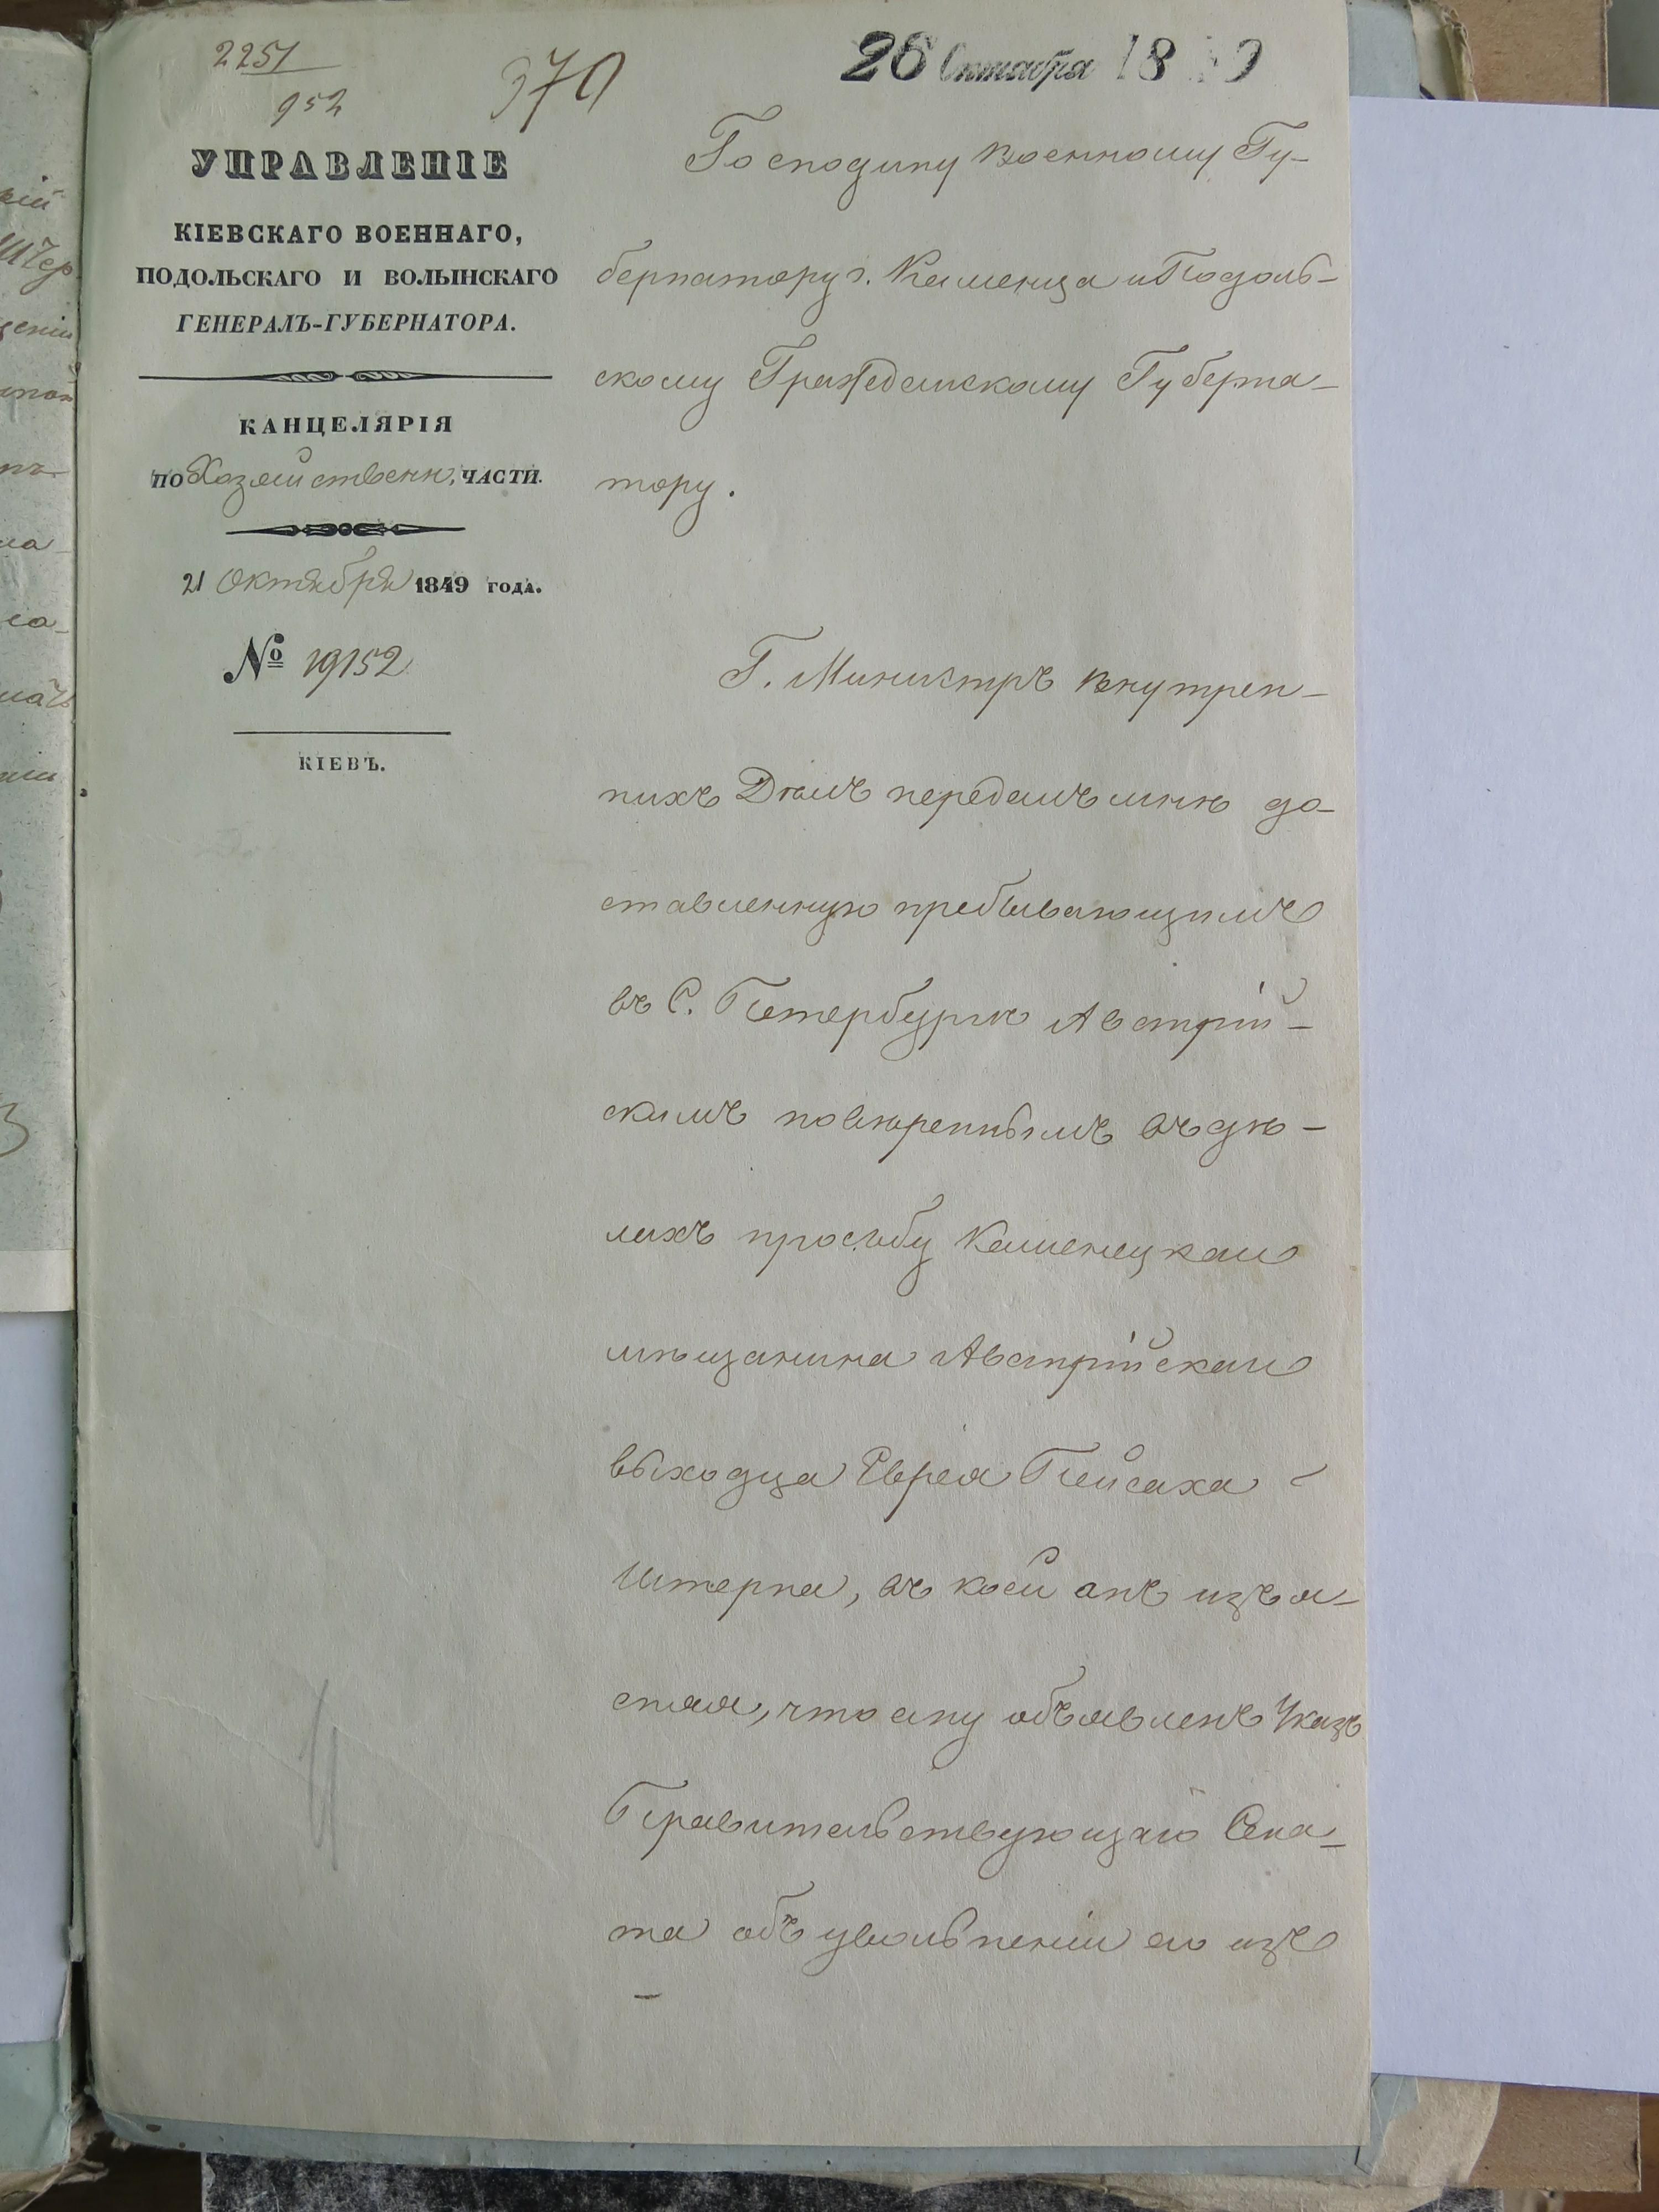 2251
952
370
26 Октября 18 9
УПРАВЛЕНІЕ
КІЕВСКАГО ВОЕННАГО,
ПОДОЛЬСКАГО И ВОЛЫНСКАГО
ГЕНЕРАЛЪ-ГУБЕРНАТОРА.
КАНЦЕЛЯРІЯ
ПО Хозяйственн. ЧАСТИ.
21 Октября 1849 ГОДА.
№ 19152
КІЕВЪ.
Господину Военному Гу-
бернатору г. Каменца и Подоль-
скому Гражданскому Губерна-
тору.
Г. Министръ Внутрен-
нихъ Дѣлъ передалъ мнѣ до-
ставленную пребывающимъ
въ С. Петербургѣ Австрій-
скимъ повѣреннымъ въ дѣ-
лахъ просьбу Каменецкаго
мѣщанина Австрійскаго
выходца Еврея Пейсаха
Штерна, въ коей онъ изъя-
сняя, что ему объявленъ Указъ
Правительствующаго Сена-
та объ увольненіи его изъ